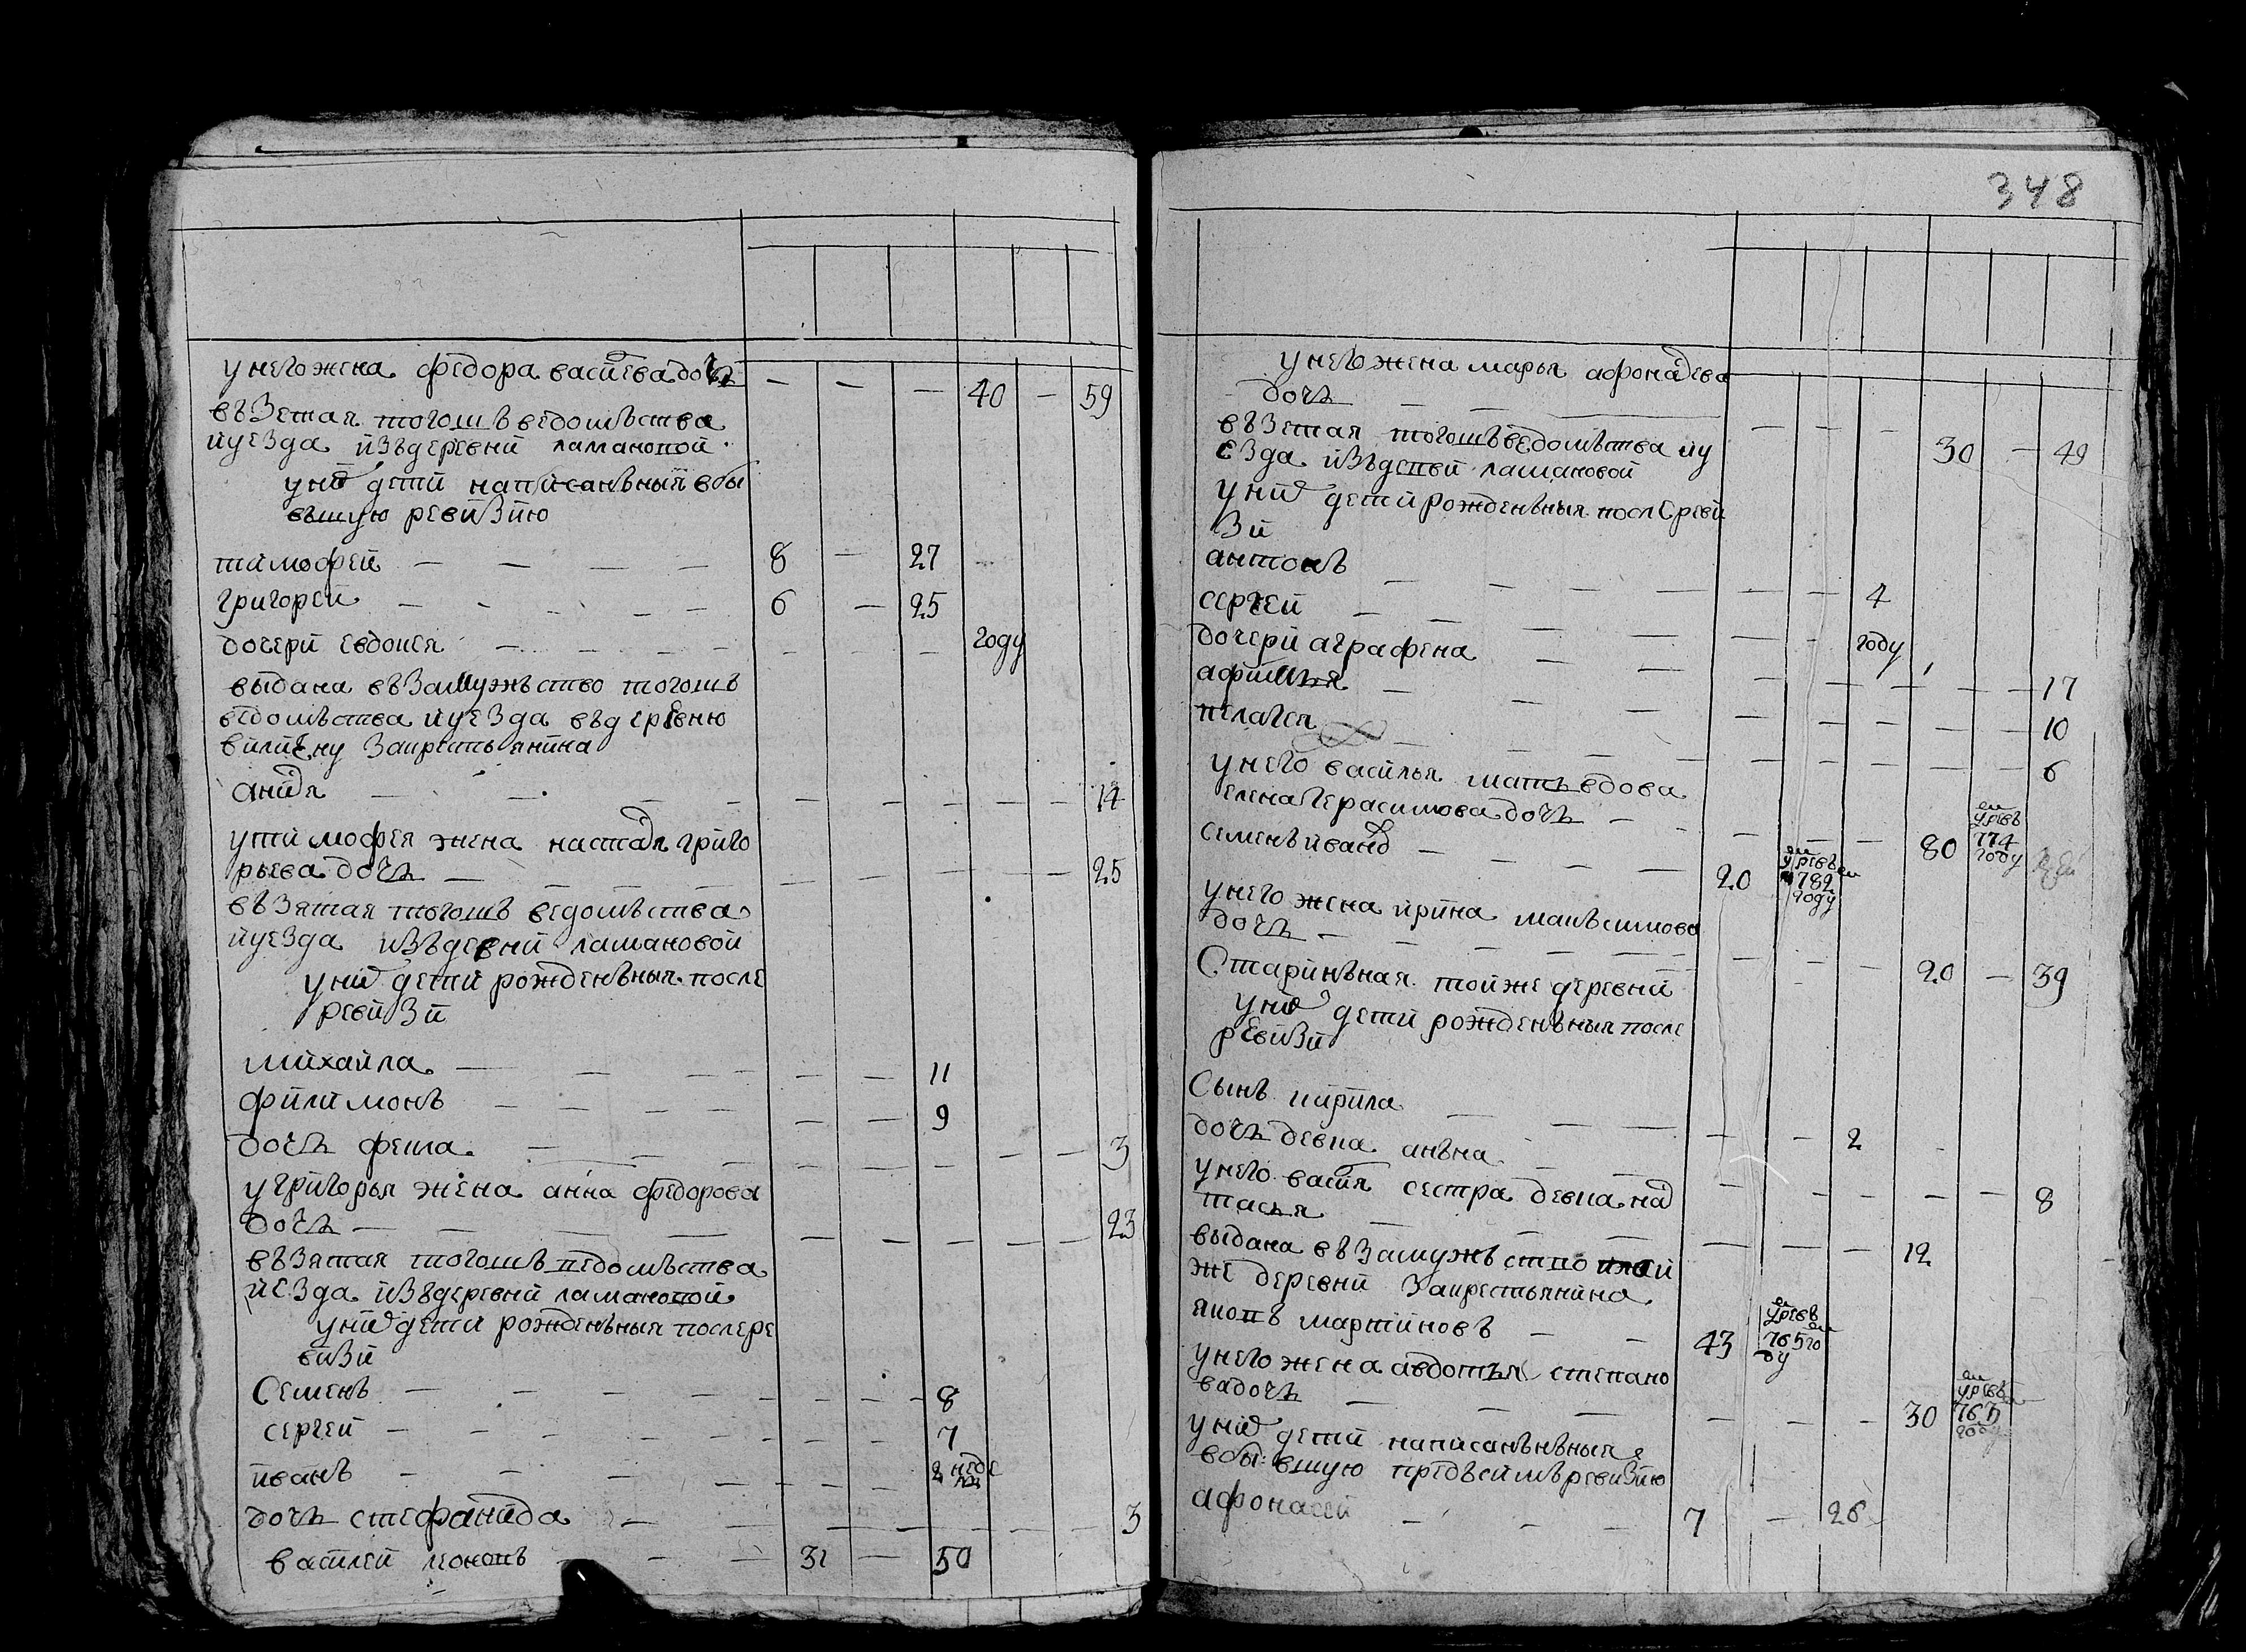 348
у него жена федора васильева дочь — — — 40 — 59
възетая тогошъ ведомъства
и уезда изъ деревни ламановой
у них дети написанъныи в бы
въшую ревизию
тимофей — — — — 8 — 27
григорей — — — — 6 — 25
дочери евдокея — — — — году
выдана въ замужъство тогошъ
ведомъства и уезда въ деревню
за крестьянина
— — — — 14
у тимофея жена настасья григо
рьева дочь — — — — 25
възятая тогошъ ведомъства
и уезда изъ деревни ламановой
у них дети рожденъныя после
ревизи
михайла — — — — 11
филимонъ — — — — 9
дочь фекла — — — — 3
у григорья жена анна федорова
дочь — — — — 23
възятая тогошъ ведомъства
и езда изъ деревни ламановой
у них дети рожденъныя после ре
визи
семенъ — — — — 8
сергей — — — — 7
иванъ — — — — 2 неде
ли
дочь стефанида — — — — 3
василей леоновъ — — — 31 — 50
у него жена марья афонасьева
дочь — — — — 30 — 49
възетая тогошъ ведомъства и у
езда изъ деревни ламановой
у них дети рожденъныя после реви
зи
антонъ — — — — 4
сергей — — — — году
дочери аграфена — — — — 17
афимья — — — — 10
пелагея — — — — 6
у него василья мать вдова
елена герасимова дочь — — — — 80 умре въ 774 году
семенъ ивановъ — — — — 20 умре въ 782 году
у него жена ирина макъсимова
дочь — — — — 20 — 39
старинъная той же деревни
у них дети рожденъныя после
ревизи
сынъ кирила — — — — 2
дочь девка анъна — — — — 8
у него василья сестра девка нас
тасья — — — — 12
выдана въ замужъство той
же деревни за крестьянина
яковъ мартиновъ — — 43 умре въ 765 го
ду
у него жена авдотья степано
ва дочь — — — — 30 умре въ году
у них дети написанънъныя
в бы вшую предъ симъ ревизию
афонасей — — — 7 — 26